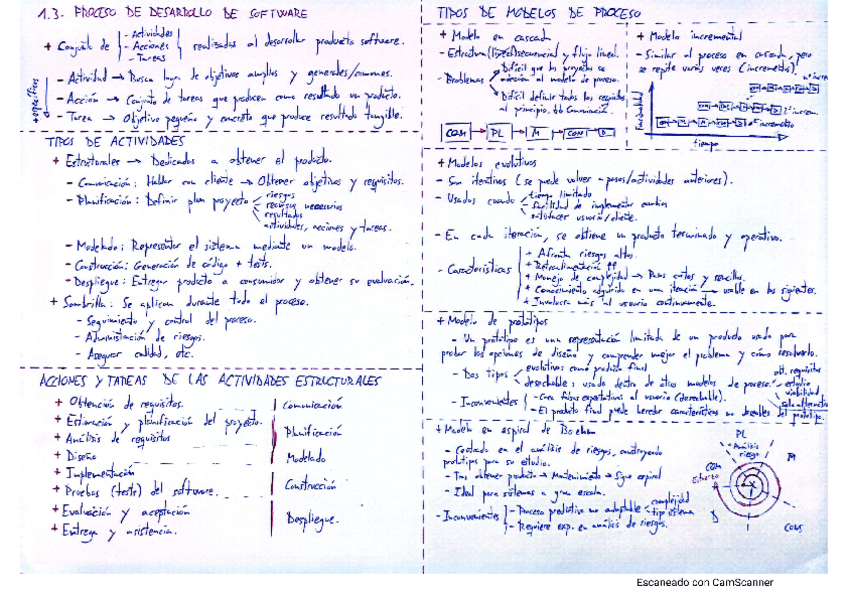 1.3. PROCESO DE DESARROLLO DE SOFTWARE
+ Conjunto de
- Actividades
- Acciones
- Tareas
realizadas al desarrollar producto software.
- Actividad → Busca logro de objetivos amplios y generales/comunes.
- Acción → Conjunto de tareas que producen como resultado un producto.
- Tarea → Objetivo pequeño y concreto que produce resultado tangible.
TIPOS DE ACTIVIDADES
+ Estructurales → Dedicados a obtener el producto.
- Comunicación: Hablar con cliente → Obtener objetivos y requisitos.
- Planificación: Definir plan proyecto
riesgos
recursos necesarios
resultados
actividades, acciones y tareas.
- Modelado: Representar el sistema mediante un modelo.
- Construcción: Generación de código + tests.
- Despliegue: Entregar producto a consumidor y obtener su evaluación.
+ Sombrilla: Se aplican durante todo el proceso.
- Seguimiento y control del proceso.
- Administración de riesgos.
- Asegurar calidad, etc.
ACCIONES Y TAREAS DE LAS ACTIVIDADES ESTRUCTURALES
+ Obtención de requisitos.
+ Estimación y planificación del proyecto.
+ Análisis de requisitos
+ Diseño
+ Implementación
+ Pruebas (tests) del software.
+ Evaluación y aceptación
+ Entrega y asistencia.
Comunicación
Planificación
Modelado
Construcción
Despliegue.
TIPOS DE MODELOS DE PROCESO
+ Modelo en cascada
- Estructura secuencial y flujo lineal.
- Problemas
Difícil que los proyectos se
al modelo de proceso.
Difícil definir todos los requisitos
al principio. Comunicación.
COM → PL → M → CONS → D
+ Modelo incremental
- Similar al proceso en cascada, pero
se repite varias veces (incrementos).
Funcionalidad
tiempo
1º incremento
2º increm.
nº increm
+ Modelos evolutivos
- Son iterativos (se puede volver a pasos/actividades anteriores).
- Usados cuando
tiempo limitado
facilidad de implementar cambios
satisfacer usuario/cliente.
- En cada iteración, se obtiene un producto terminado y operativo.
- Características
+ Afronta riesgos altos.
+ Retroalimentación
+ Manejo de complejidad → Pasos cortos y sencillos.
+ Conocimiento adquirido en una iteración → usable en las siguientes.
+ Involucra más al usuario continuamente.
+ Modelo de prototipos
- Un prototipo es una representación limitada de un producto usado para
probar las opciones de diseño y comprender mejor el problema y cómo resolverlo.
- Dos tipos
evolutivos: como producto final
desechable: usado dentro de otros modelos de proceso.
obt. requisitos
estudio
viabilidad
- Inconvenientes
- Crea falsas expectativas al usuario (desechable).
- El producto final puede heredar características no deseables del prototipo.
+ Modelo en espiral de Boehm
- Centrado en el análisis de riesgos, construyendo
prototipos para su estudio.
- Tras obtener producto → Mantenimiento → Sigue espiral
- Ideal para sistemas a gran escala.
- Inconvenientes
- Proceso predictivo no adaptable
complejidad
tipo sistema
- Requiere exp. en análisis de riesgos.
PL
- Análisis
riesgo
COM
M
D
CONS
Escaneado con CamScanner